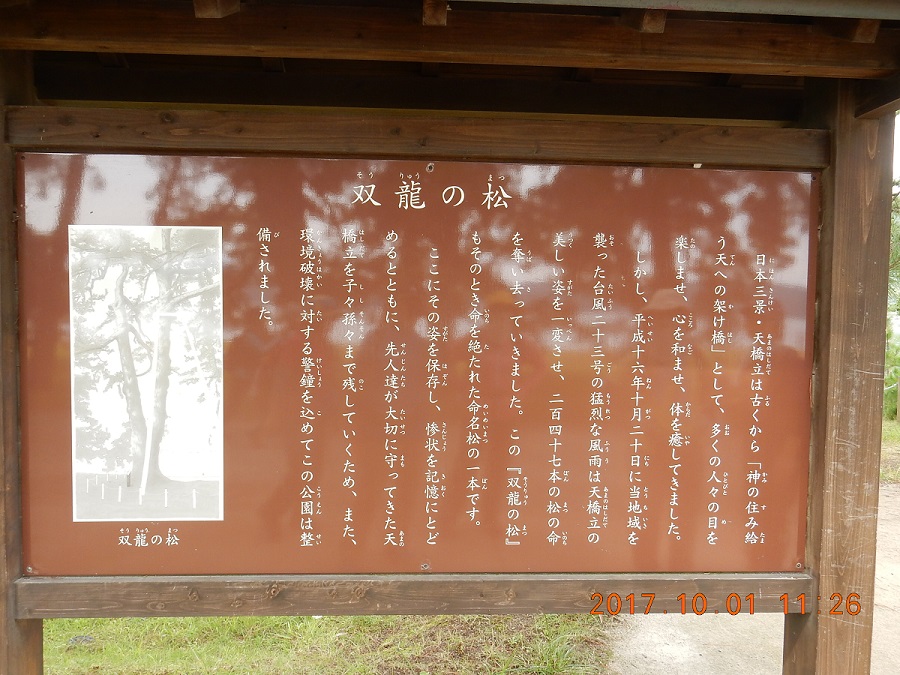 双龍の松
日本三景・天橋立は古くから「神の住み給
う天への架け橋」として、多くの人々の目を
楽しませ、心を和ませ、体を癒してきました。
しかし、平成十六年十月二十日に当地域を
襲った台風二十三号の猛烈な風雨は天橋立の
美しい姿を一変させ、二百四十七本の松の命
を奪い去っていきました。この『双龍の松』
もそのとき命を絶たれた命名松の一本です。
ここにその姿を保存し、惨状を記憶にとど
めるとともに、先人達が大切に守ってきた天
橋立を子々孫々まで残していくため、また、
環境破壊に対する警鐘を込めてこの公園は整
備されました。
双龍の松
2017.10.01 11:26